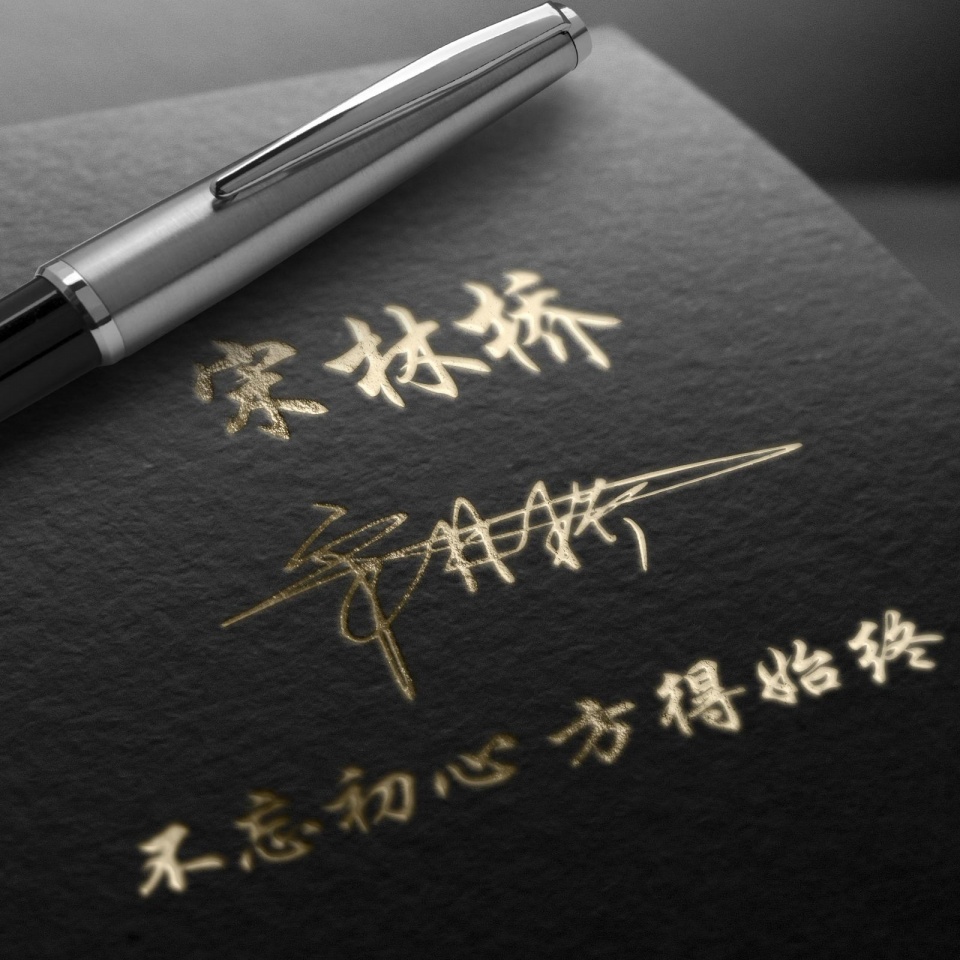 宋林桥
宋林桥
不忘初心 方得始终